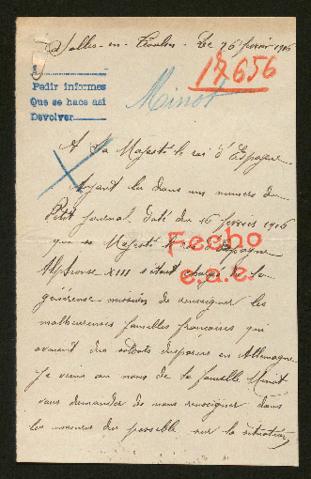 Salles-en-Toulon. Le 26 février 1916
17656
Pedir informes
Que se hace asi
Devolver
Minot
A Sa Majesté le roi d'Espagne
Ayant lu dans un numéro du
Petit Journal. daté du 16 février 1916
que sa Majesté le roi d'Espagne
Alphonse XIII s'était chargé de la
généreuse mission de renseigner les
malheureuses familles françaises qui
avaient des enfants disparus en Allemagne
Je viens au nom de la famille Minot
vous demander de nous renseigner dans
les mesures du possible sur la situation
Fecho
e.a.e.